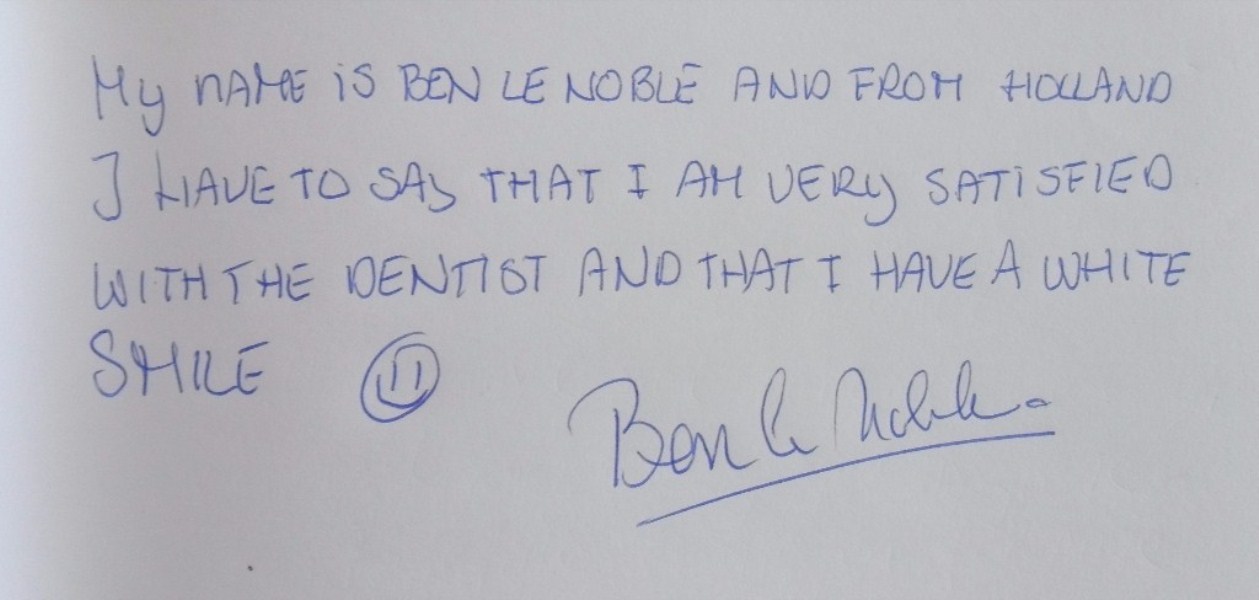 My NAME iS BEN LE NOBLE AND FROM HOLLAND
I HAVE TO SAY THAT I AM VERY SATiSFIED
WITH THE DENTIST AND THAT I HAVE A WHITE
SMILE
Ben le Noble